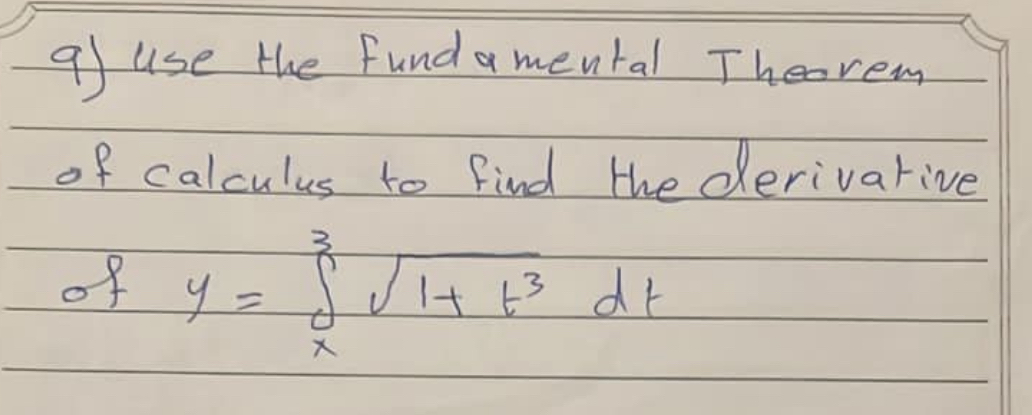 9) Use the Fundamental Theorem
of calculus to find the derivative
of y = ∫ₓ³ √(1 + t³) dt